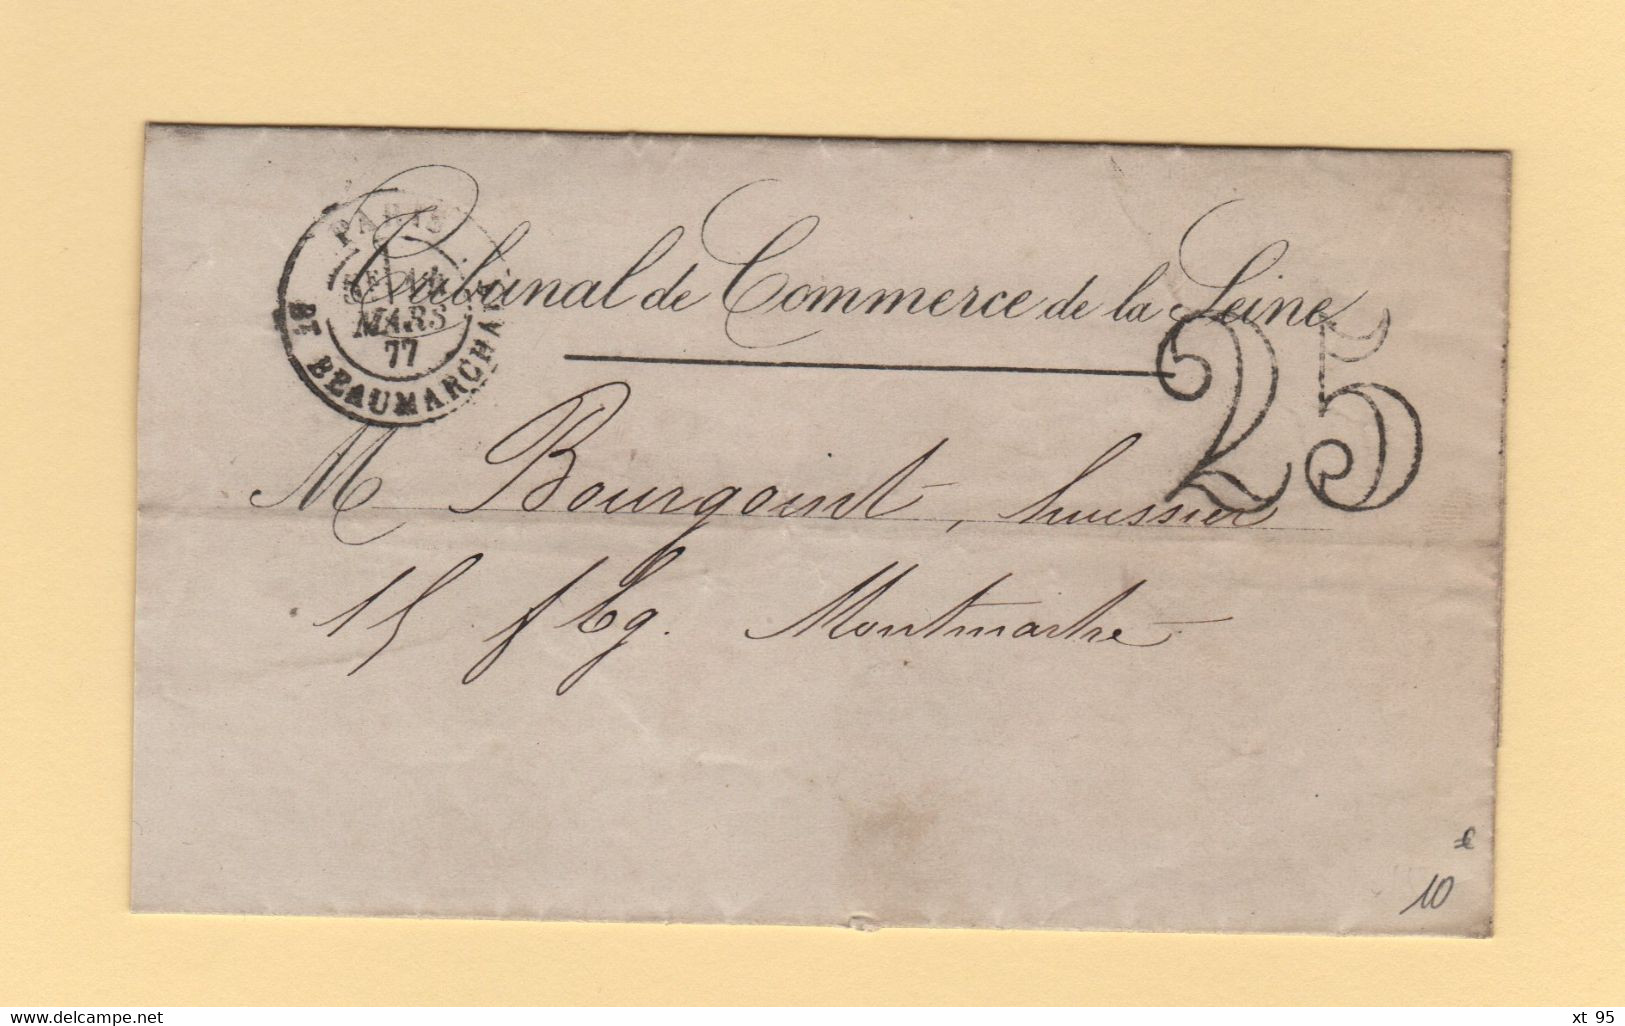 Tribunal de Commerce de la Seine
PARIS
5E 14
MARS
77
BT BEAUMARCHAIS
25
M Bourgoint, huissier
15 fbg. Montmartre
10
www.delcampe.net
xt 95